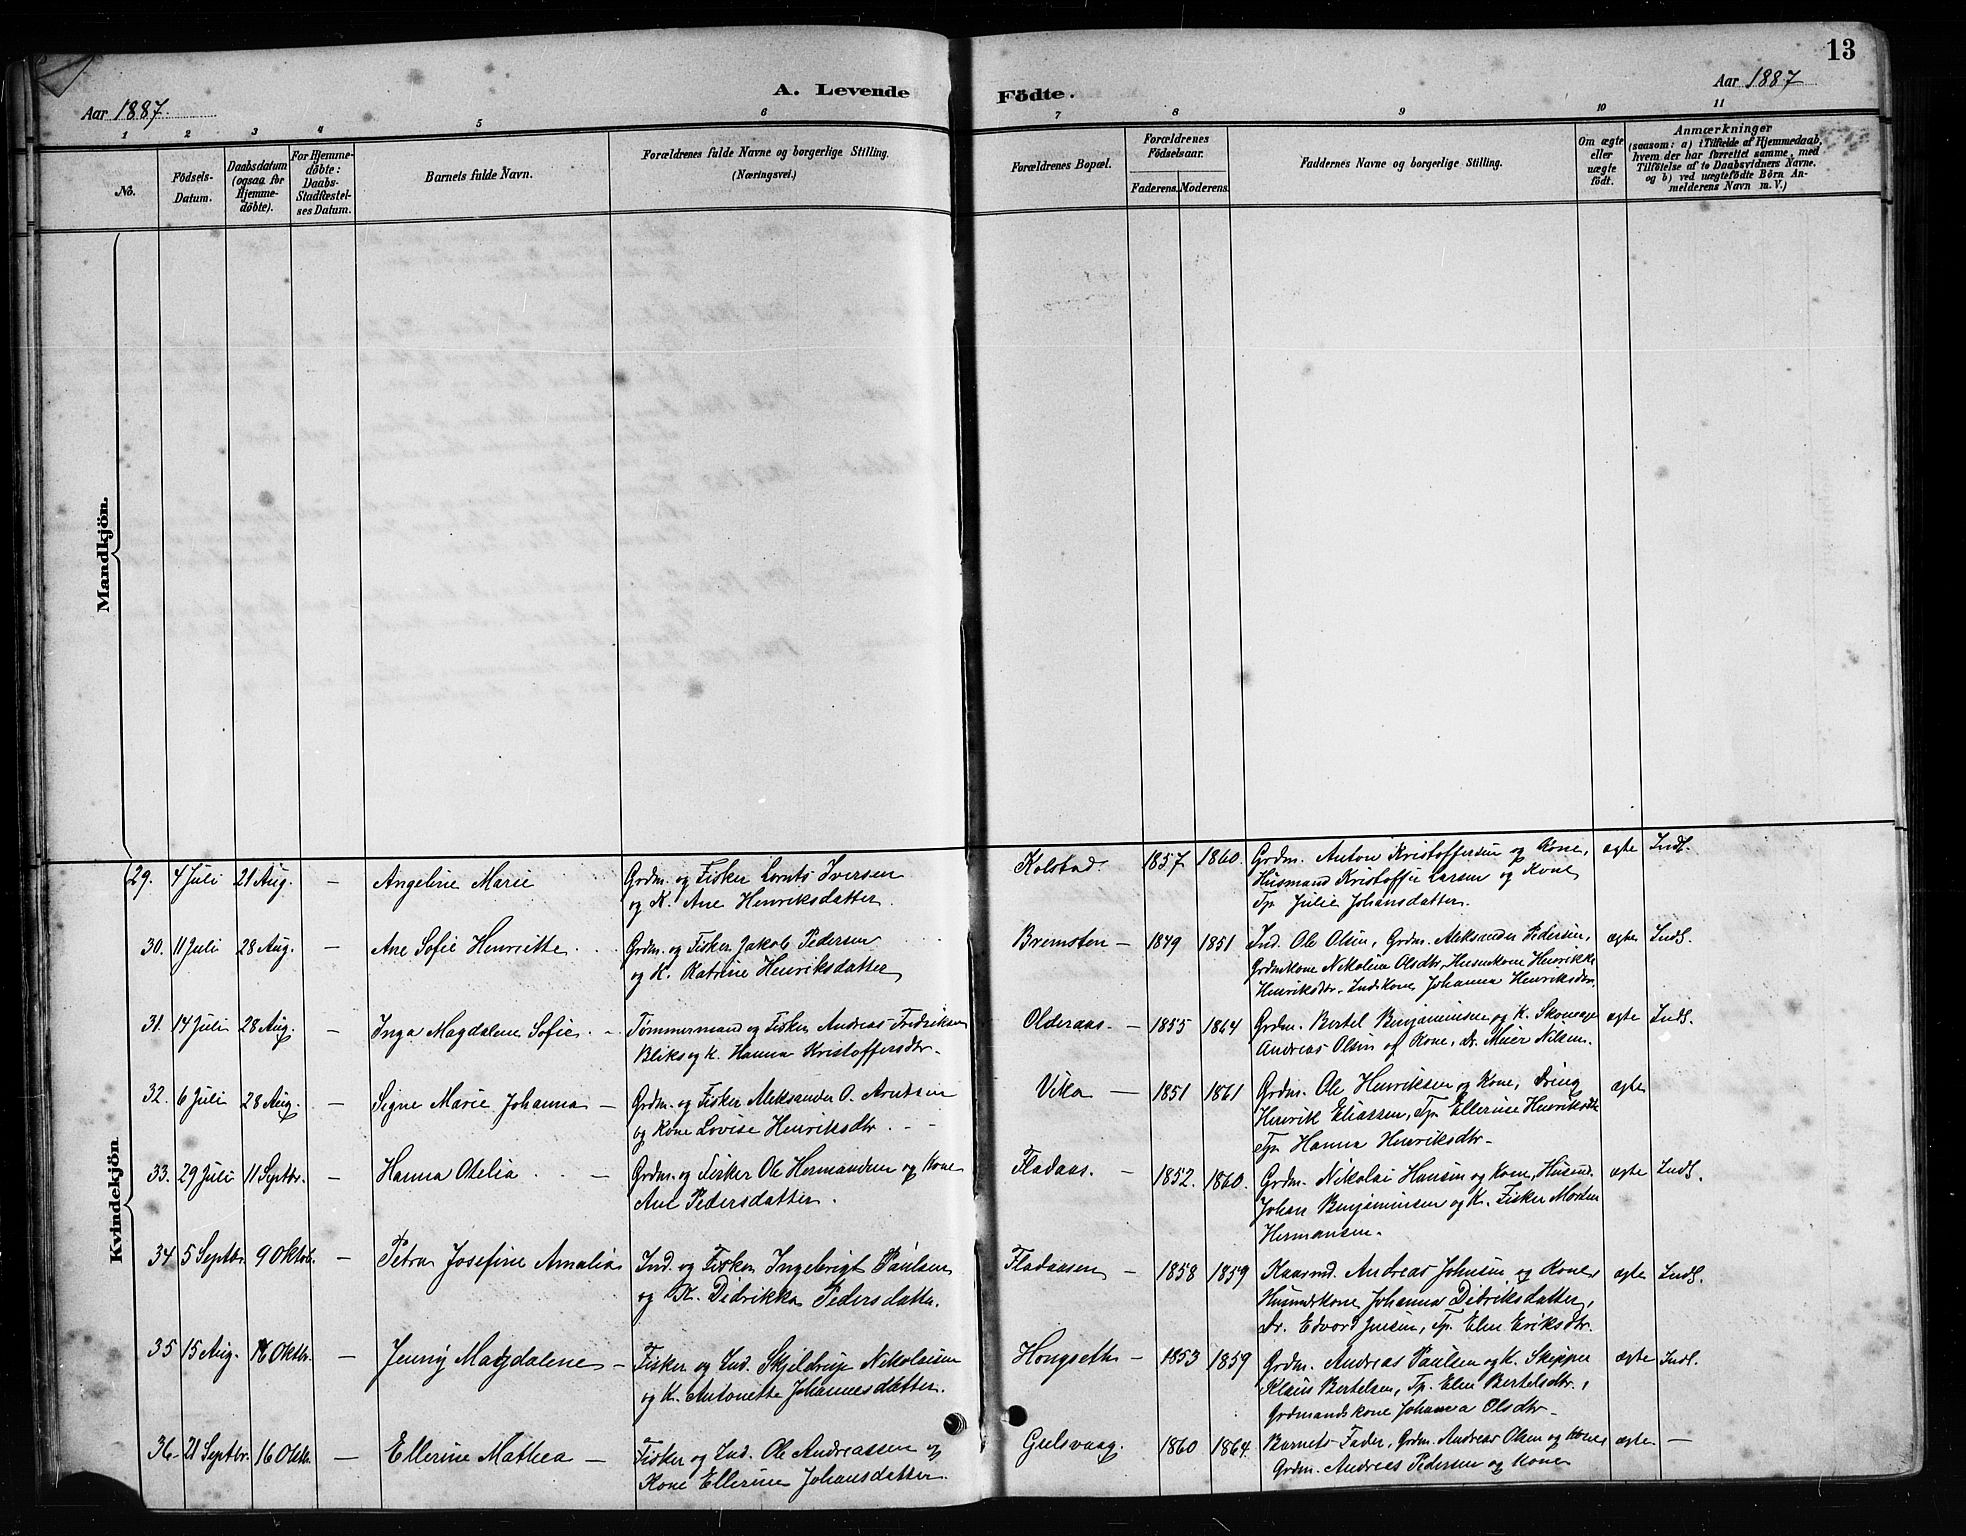 13
Aar 1887. A. Levende Födte. Aar 1887
1 2 3 4 5 6 7 8 9 10 11
No.
Födsels-Datum.
Daabsdatum (ogsaa for Hjemme-döbte).
For Hjemme-döbte: Daabs-Stadfæstel-ses Datum.
Barnets fulde Navn.
Forældrenes fulde Navne og borgerlige Stilling.
(Næringsvei.)
Forældrenes Bopæl.
Forældrenes Födselsaar.
Faderens. Moderens.
Faddernes Navne og borgerlige Stilling.
Om ægte eller uægte födt.
Anmærkninger
(saasom: a) i Tilfælde af Hjemmedaab,
hvem der har forrettet samme, med
Tilföielse af to Daabsvidners Navne.
og b) ved uægtefödte Börn An-
melderens Navn m. V.)
Mandkjön.
Kvindekjön
29. 4 Juli 21 Aug. — Angeline Marie Grdm. og Fisker Lornts Iversen Kolstad. 1857 1860. Grdm. Anton Kristoffersen og Kone, ægte Indl.
og K. Ane Henriksdatter. Husmand Kristoffer Larsen og Kone
Tp. Julie Johansdatter.
30. 11 Juli 28 Aug. — Ane Sofie Henriette Grdm. og Fisker Jakob Pedersen Bremsten — 1849 1851 Ind. Ole Olsen, Grdm. Aleksander Pedersen, ægte Indl.
og K. Katrine Henriksdatter Grdmkone Nikoline Olsdtr, Husmkone Henrikke
Henriksdtr. Indskone Johanna Henriksdtr.
31. 14 Juli 28 Aug. — Inga Magdalene Sofie Tømmermand og Fisker Andreas Fredriksen Olderaas. — 1855 1864 Grdm. Bertel Benjaminsen og K. Skomager ægte Indl.
Bliks og K. Hanna Kristoffersdtr. Andreas Olsen og Kone, Dr. Meier Nilsen.
32. 6 Juli 28 Aug. — Signe Marie Johanna — Grdm. og Fisker Aleksander O. Arntsen Vika — 1851 1861 Grdm. Ole Henriksen og Kone, Dreng ægte
og Kone Lovise Henriksdtr. Henrik Eliassen, Tp. Ellerine Henriksdtr
Tp. Hanna Henriksdtr.
33. 29 Juli 11 Septbr. — Hanna Otelia — Grdm. og Fisker Ole Hermandsen og Kone Fladaas. — 1852. 1860. Grdm. Nikolai Hansen og Kone, Husmd. ægte Indl.
Ane Pedersdatter. Johan Benjaminsen og K. Fisker Morten
Hermansen.
34 5 Septbr. 9 Oktob. — Petra Josefine Amalia Ind. og Fisker Ingebrigt Paulsen Fladaasen — 1858 1859 Kaarmd. Andreas Johnsen og Kone ægte Indl.
og K. Didrikka Pedersdatter. Husmdskone Johanna Didriksdatter,
Dr. Edvard Jensen, Tp. Elen Eriksdtr.
35 15 Aug. 16 Oktbr. — Jenny Magdalene — Fisker og Ind. Skjeldrup Nikolaisen Hongseth — 1853 1859 Grdm. Andreas Paulsen og K. Skipper ægte Indl.
og K. Antonette Johannesdatter. Klaus Bertelsen, Tp. Elen Bertelsdtr.,
Grdmandskone Johanna Olsdtr
36. 21 Septbr. 16 Oktbr. — Ellerine Mathea — Fisker og Ind. Ole Andreassen og Gulsvaag. 1860 1864 Barnets Fader, Grdm. Andreas Olsen og Kone ægte —
Kone Ellerine Johansdatter. Grdm. Andreas Pedersen og Kone